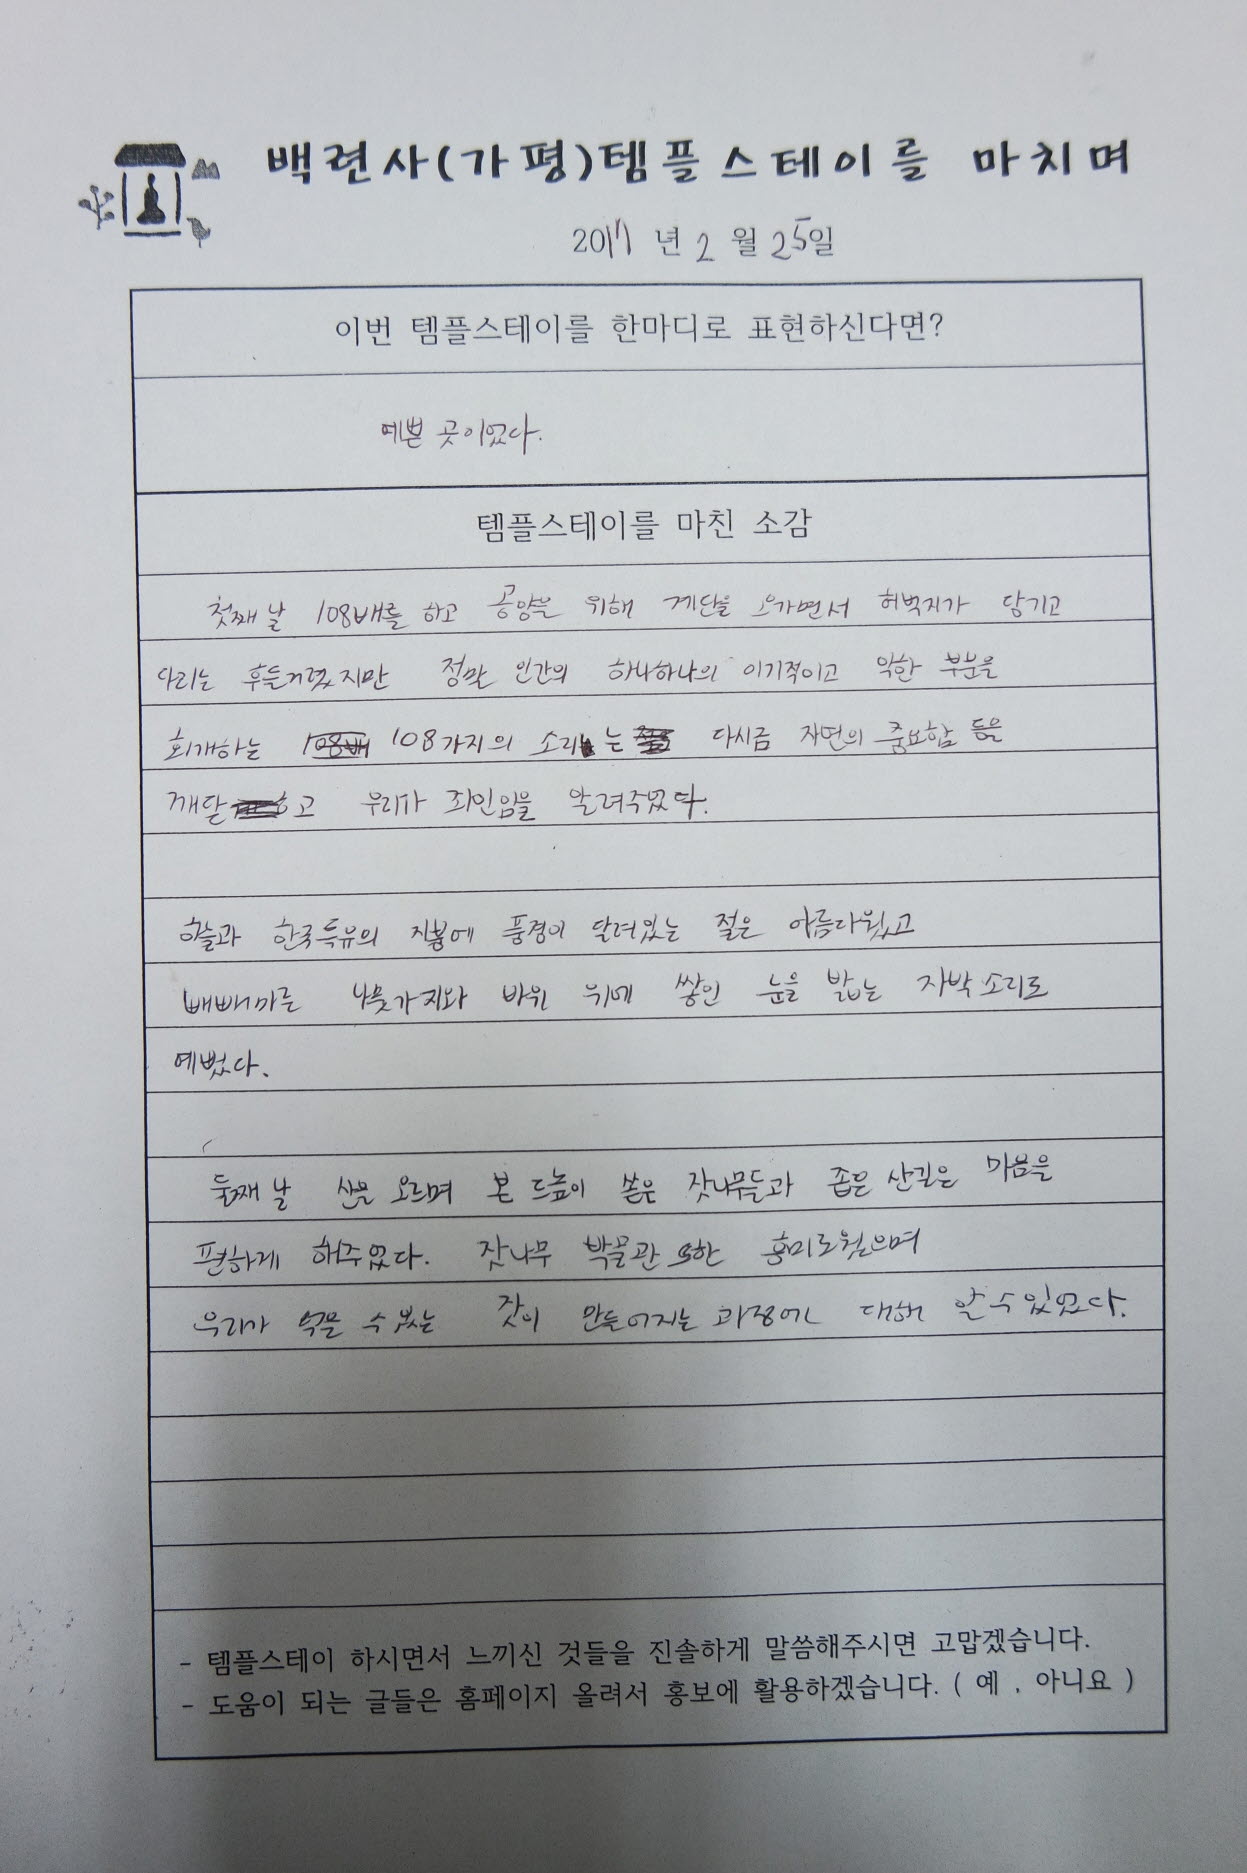 백련사(가평)템플스테이를 마치며
2017 년 2 월 25일
이번 템플스테이를 한마디로 표현하신다면?
예쁜 곳이었다.
템플스테이를 마친 소감
첫째 날 108배를 하고 공양을 위해 계단을 오가면서 허벅지가 당기고
다리는 후들거렸지만 정말 인간의 하나하나의 이기적이고 악한 부분을
회개하는 108배 108가지의 소리는 다시금 자연의 중요함 등을
깨닫고 우리가 죄인임을 알려주었다.
하늘과 한국특유의 지붕에 풍경이 달려있는 절은 아름다웠고
빼빼마른 나뭇가지와 바위 위에 쌓인 눈을 밟는 자박소리로
예뻤다.
둘째 날 산을 오르며 본 드높이 솟은 잣나무들과 좁은 산길은 마음을
편하게 해주었다. 잣나무 박물관 또한 흥미로웠으며
우리가 먹을 수 있는 잣이 만들어지는 과정에 대해 알 수 있었다.
- 템플스테이 하시면서 느끼신 것들을 진솔하게 말씀해주시면 고맙겠습니다.
- 도움이 되는 글들은 홈페이지 올려서 홍보에 활용하겠습니다. ( 예 , 아니요 )